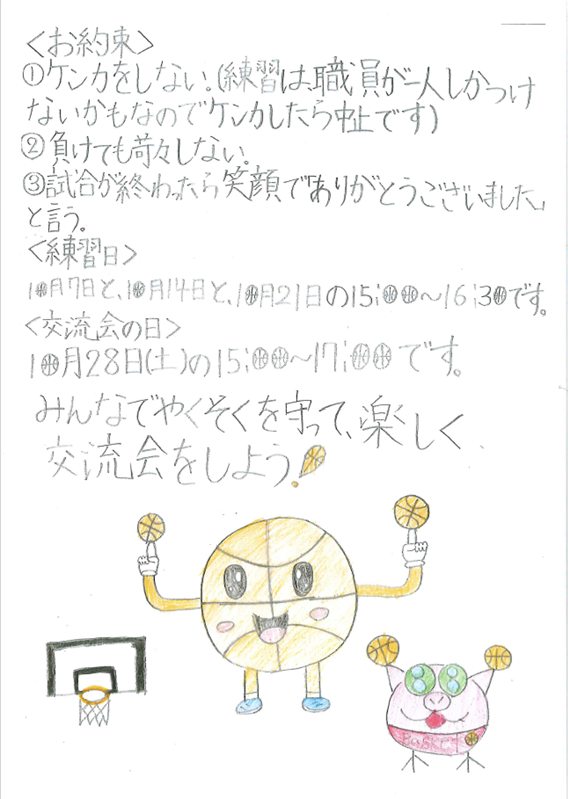 <お約束>
①ケンカをしない。(練習は、職員が一人しかつけ
ないかもなのでケンカしたら中止です)
②負けても苛々しない。
③試合が終わったら笑顔で「ありがとうございました」
と言う。
<練習日>
10月7日と、10月14日と、10月21日の15:00〜16:30です。
<交流会の日>
10月28日(土)の15:00〜17:00です。
みんなでやくそくを守って、楽しく
交流会をしよう!
BaSKeT